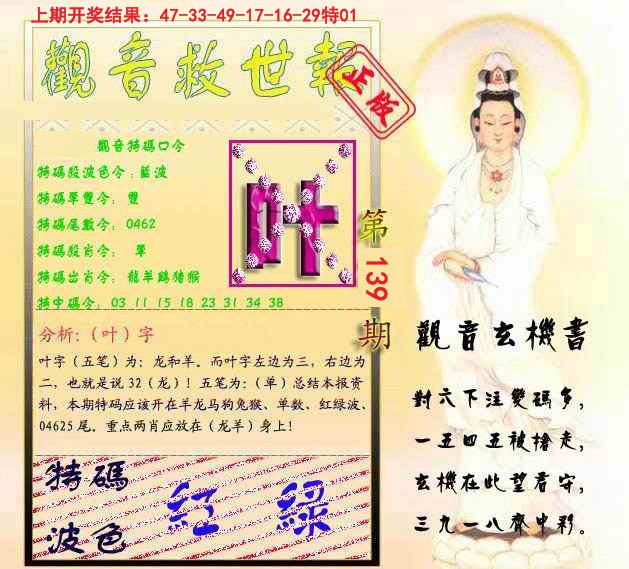 上期开奖结果：47-33-49-17-16-29特01
觀音救世報
正版
觀音特碼口令
特碼段波色令：藍波
特碼單雙令：雙
特碼尾數令：0462
特碼段肖令：單
特碼出肖令：龍羊鷄猪猴
特中碼令：03 11 15 18 23 31 34 38
叶
第139期
分析:（叶）字
叶字（五笔）为：龙和羊。而叶字左边为三，右边为
二，也就是说 32（龙）！五笔为：（单）总结本报资
料，本期特码应该开在羊龙马狗兔猴、单数、红绿波、
04625 尾。重点两肖应放在（龙羊）身上！
特碼
波色
紅 綠
觀音玄機書
對六下注變碼多，
一五四五被搶走，
玄機在此望看守，
三九一八齊中彩。